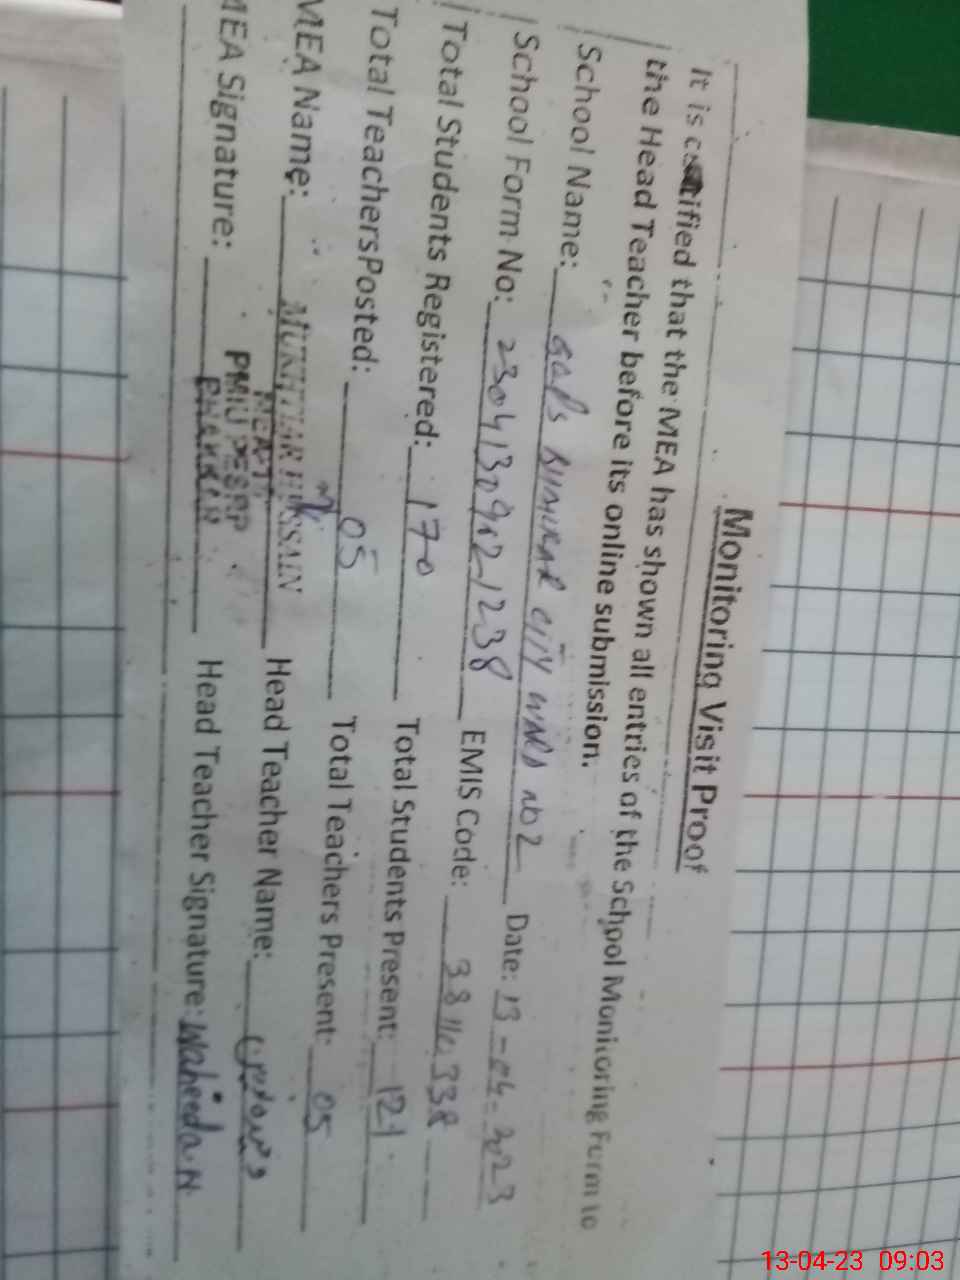 Monitoring Visit Proof
It is certified that the MEA has shown all entries of the School Monitoring Form to
the Head Teacher before its online submission.
School Name: GGPS KUMHAR CITY WARD NO 2 Date: 13-04-2023
School Form No: 23041309121238 EMIS Code:
Total Students Registered: 170 Total Students Present: 121
Total TeachersPosted: 05 Total Teachers Present: 05
MEA Name: MUKHTIAR HUSSAIN Head Teacher Name:
MEA Signature: PMIU PESRP BHAKKAR Head Teacher Signature: Waheeda.N
13-04-23 09:03